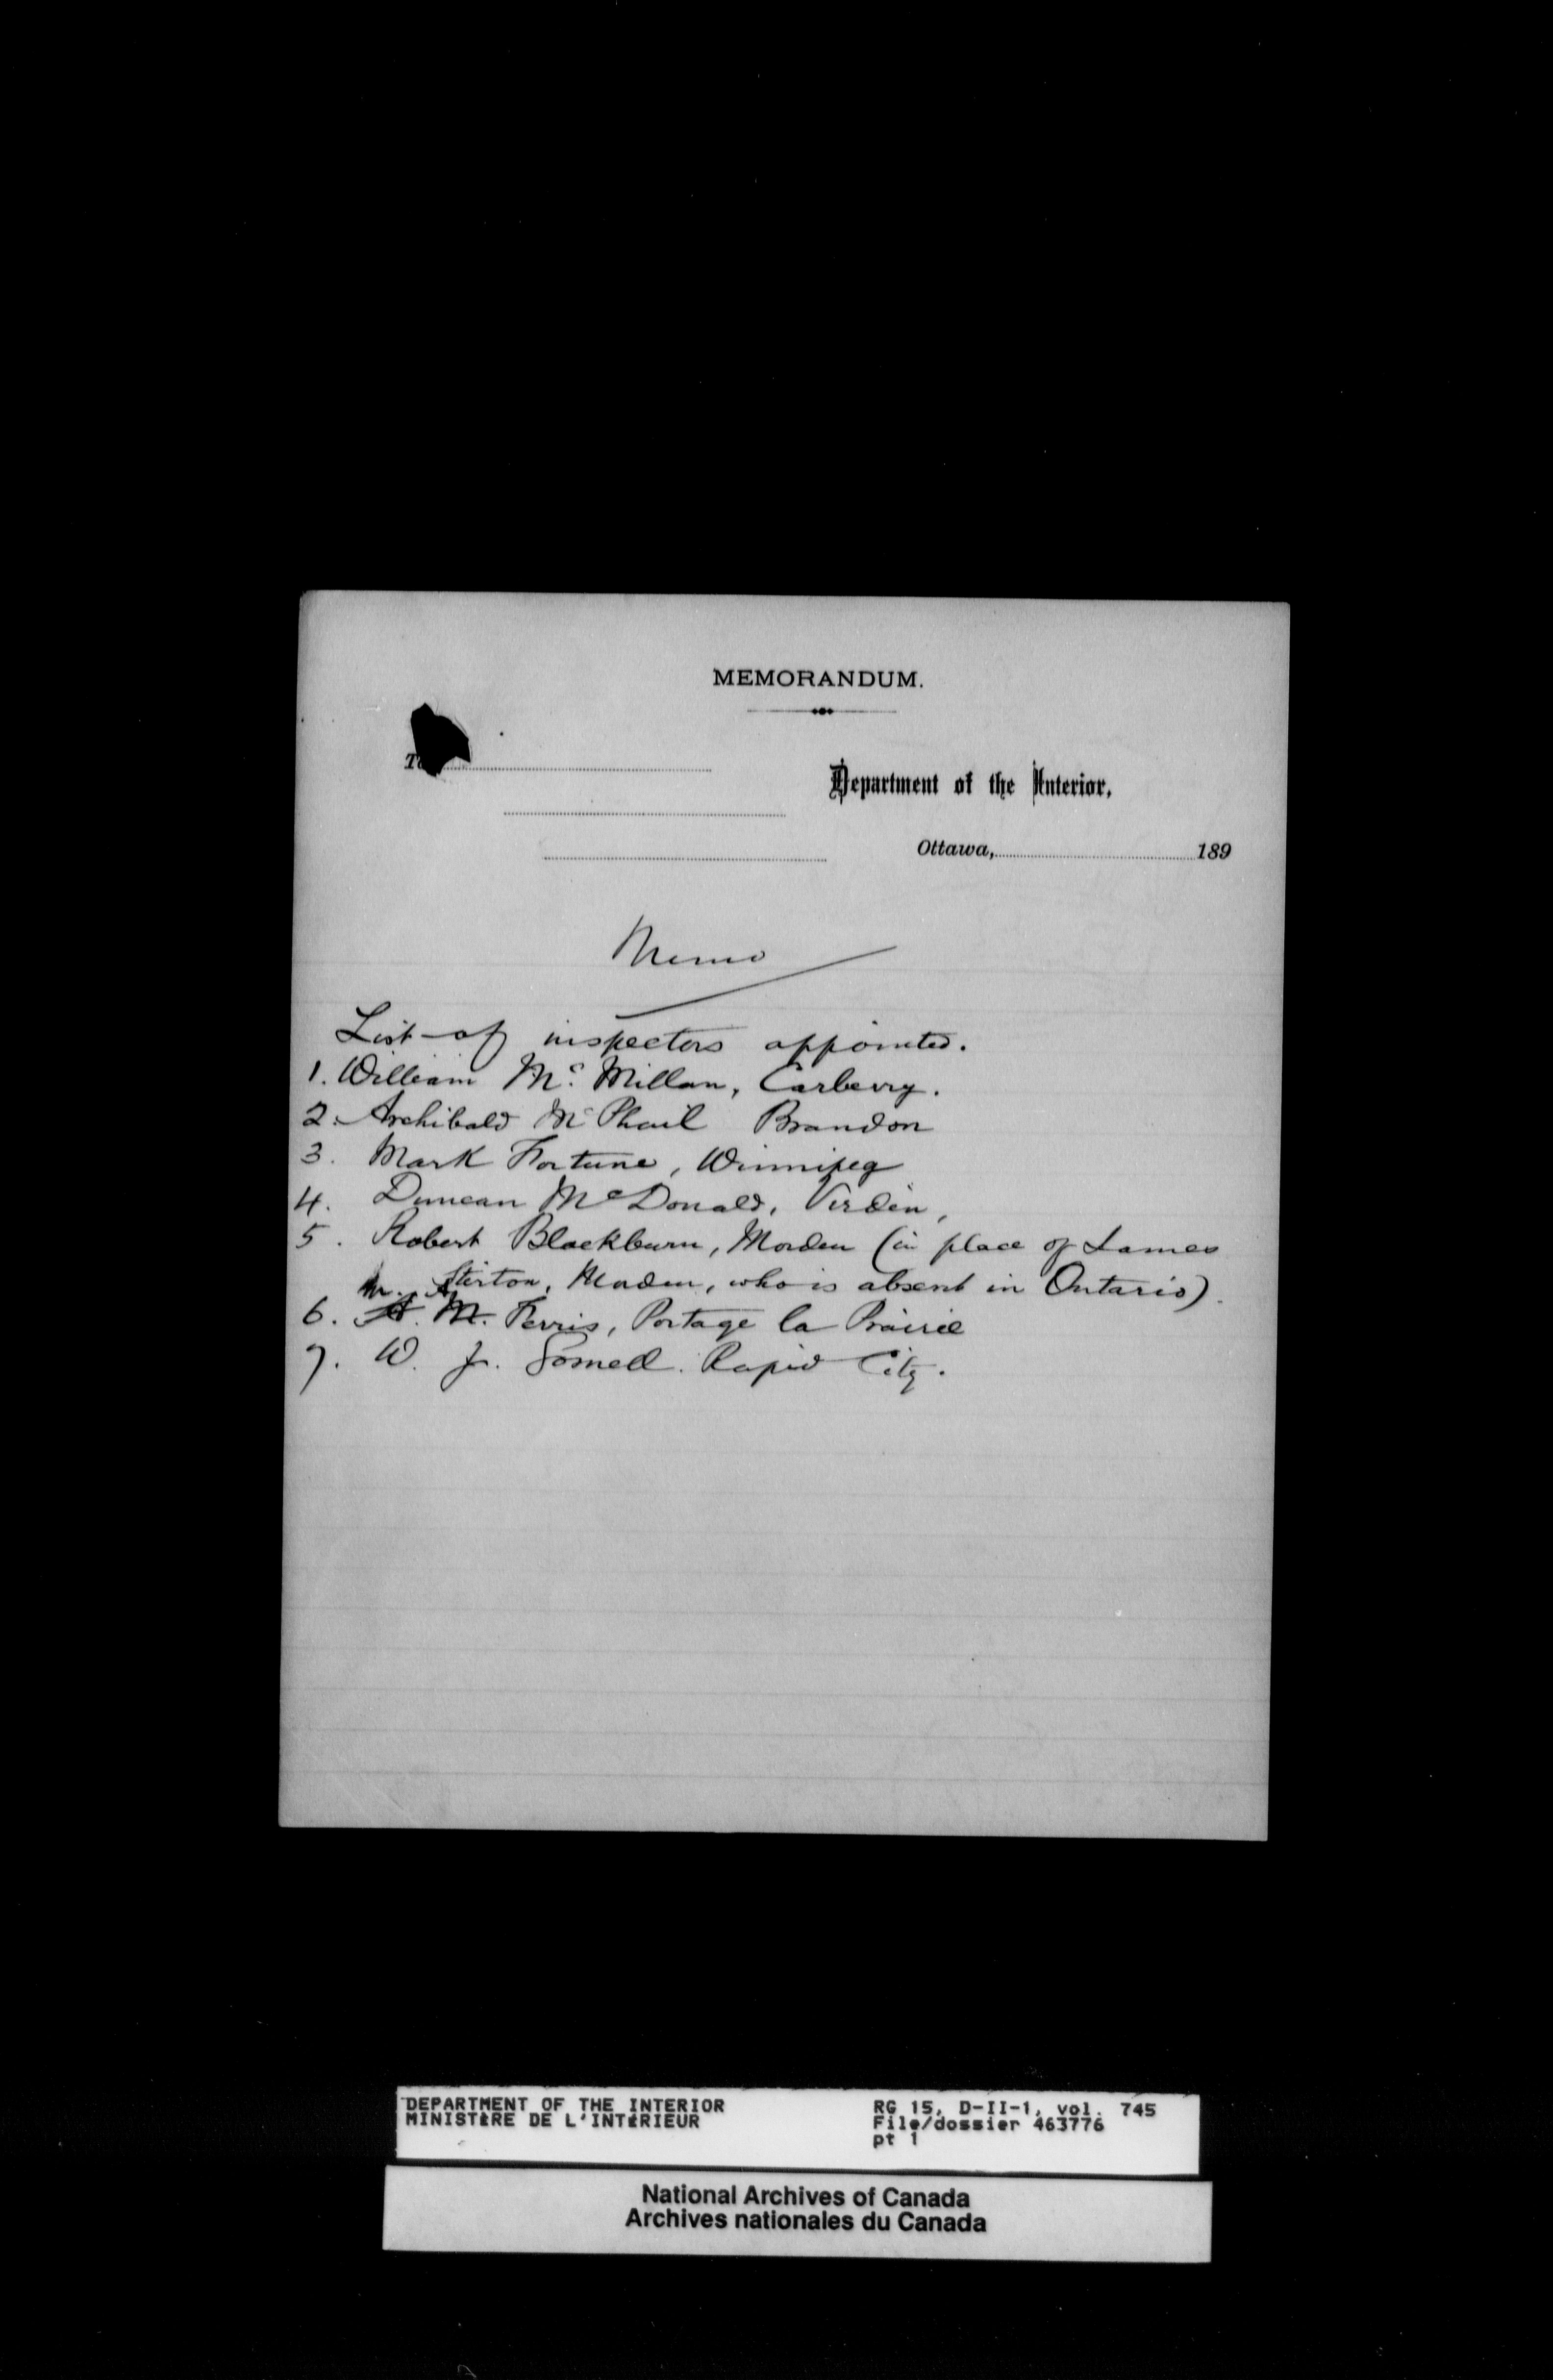 MEMORANDUM.
To
Department of the Interior,
Ottawa, 189
Memo
List of inspectors appointed.
1. William Mc. Millan, Carberry.
2. Archibald McPhail Brandon
3. Mark Fortune, Winnipeg
4. Duncan McDonald, Virden,
5. Robert Blackburn, Morden (in place of James
Stirton, Morden, who is absent in Ontario).
6. M. A. Ferris, Portage la Prairie
7. W. J. Rapid City.
DEPARTMENT OF THE INTERIOR
MINISTÈRE DE L'INTÉRIEUR
RG 15, D-II-1, vol. 745
File/dossier 463776
pt 1
National Archives of Canada
Archives nationales du Canada